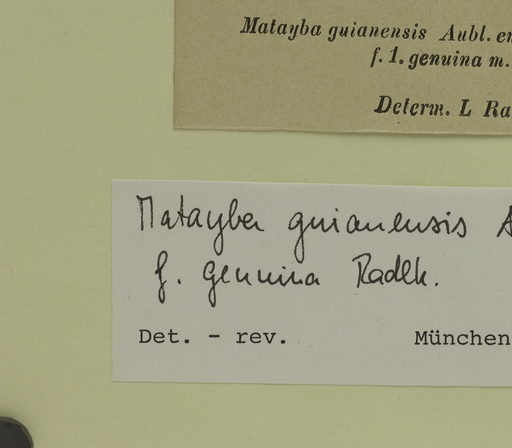 Matayba guianensis Aubl. en
f. 1. genuina m.
Determ. L Ra
Matayba guianensis A
f. genuina Radlk.
Det. - rev. München